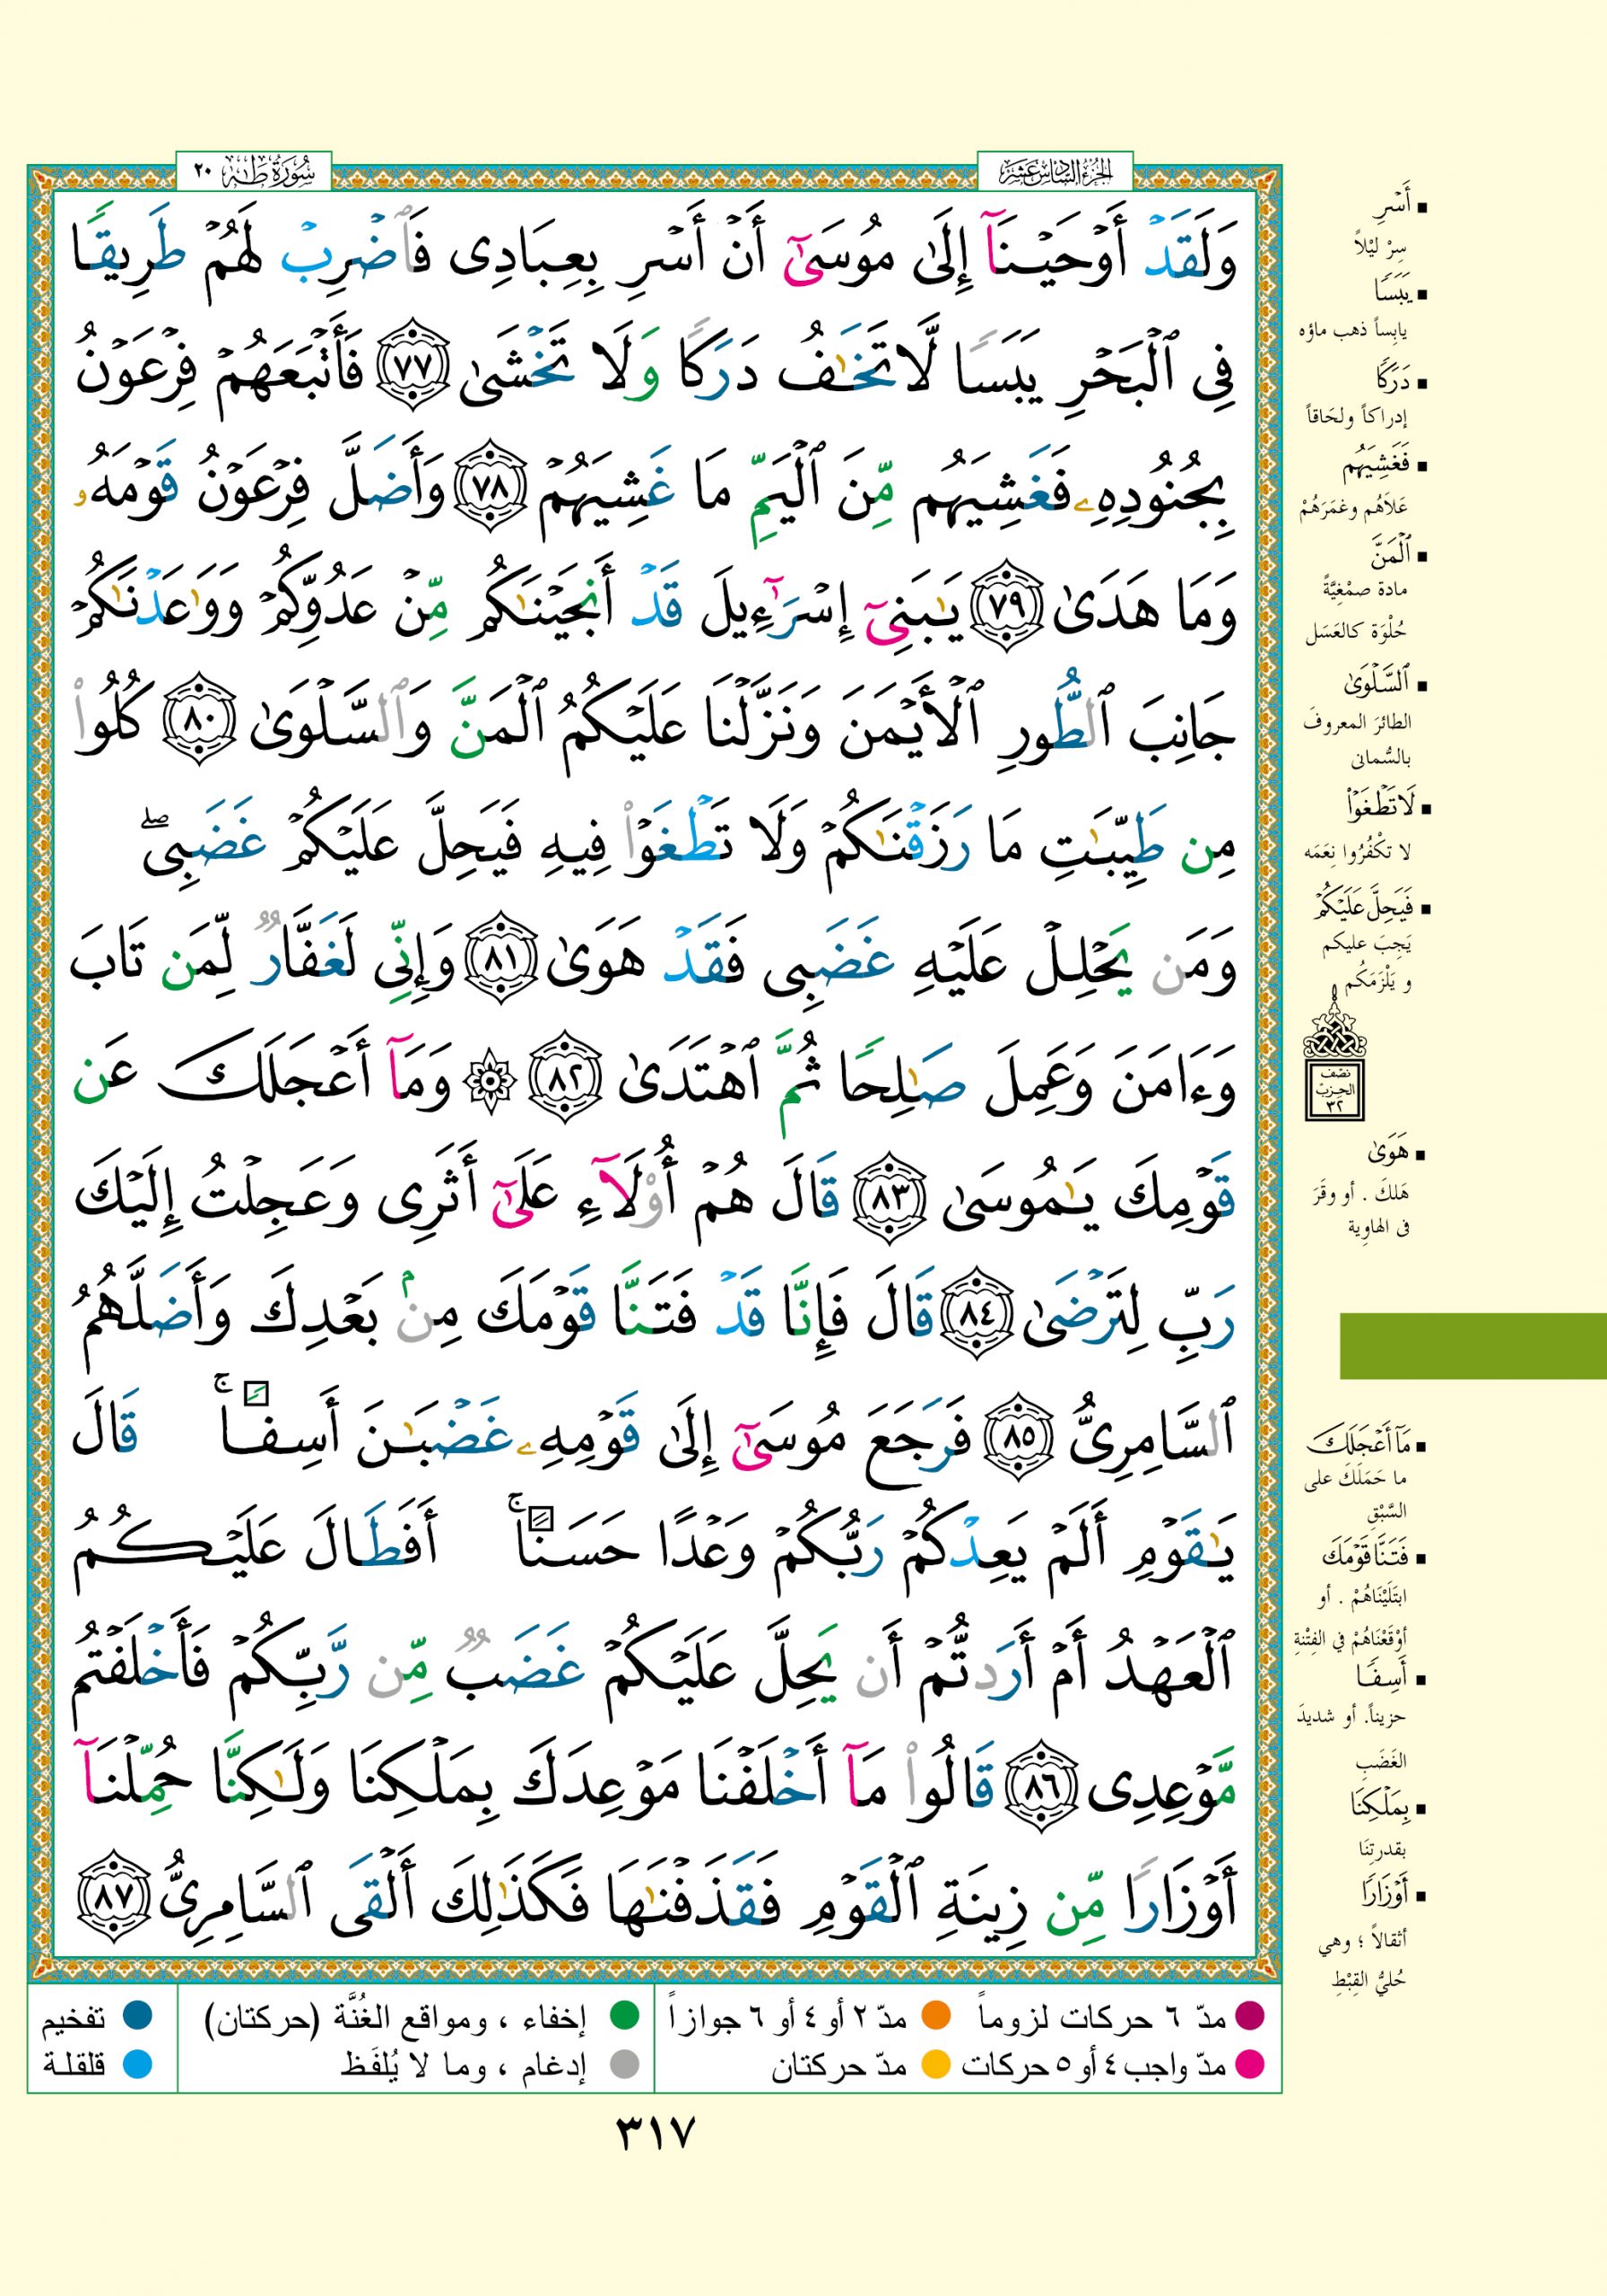 الجزء السادس عشر
سُورَةُ طه ٢٠
وَلَقَدْ أَوْحَيْنَآ إِلَىٰ مُوسَىٰٓ أَنْ أَسْرِ بِعِبَادِى فَٱضْرِبْ لَهُمْ طَرِيقًا
فِى ٱلْبَحْرِ يَبَسًا لَّا تَخَـٰفُ دَرَكًا وَلَا تَخْشَىٰ ٧٧ فَأَتْبَعَهُمْ فِرْعَوْنُ
بِجُنُودِهِۦ فَغَشِيَهُم مِّنَ ٱلْيَمِّ مَا غَشِيَهُمْ ٧٨ وَأَضَلَّ فِرْعَوْنُ قَوْمَهُۥ
وَمَا هَدَىٰ ٧٩ يَـٰبَنِىٓ إِسْرَٰٓءِيلَ قَدْ أَنجَيْنَـٰكُم مِّنْ عَدُوِّكُمْ وَوَٰعَدْنَـٰكُمْ
جَانِبَ ٱلطُّورِ ٱلْأَيْمَنَ وَنَزَّلْنَا عَلَيْكُمُ ٱلْمَنَّ وَٱلسَّلْوَىٰ ٨٠ كُلُوا۟
مِن طَيِّبَـٰتِ مَا رَزَقْنَـٰكُمْ وَلَا تَطْغَوْا۟ فِيهِ فَيَحِلَّ عَلَيْكُمْ غَضَبِى ۖ
وَمَن يَحْلِلْ عَلَيْهِ غَضَبِى فَقَدْ هَوَىٰ ٨١ وَإِنِّى لَغَفَّارٌ لِّمَن تَابَ
وَءَامَنَ وَعَمِلَ صَـٰلِحًا ثُمَّ ٱهْتَدَىٰ ٨٢ ۞ وَمَآ أَعْجَلَكَ عَن
قَوْمِكَ يَـٰمُوسَىٰ ٨٣ قَالَ هُمْ أُو۟لَآءِ عَلَىٰٓ أَثَرِى وَعَجِلْتُ إِلَيْكَ
رَبِّ لِتَرْضَىٰ ٨٤ قَالَ فَإِنَّا قَدْ فَتَنَّا قَوْمَكَ مِنۢ بَعْدِكَ وَأَضَلَّهُمُ
ٱلسَّامِرِىُّ ٨٥ فَرَجَعَ مُوسَىٰٓ إِلَىٰ قَوْمِهِۦ غَضْبَـٰنَ أَسِفًا ۚ قَالَ
يَـٰقَوْمِ أَلَمْ يَعِدْكُمْ رَبُّكُمْ وَعْدًا حَسَنًا ۚ أَفَطَالَ عَلَيْكُمُ
ٱلْعَهْدُ أَمْ أَرَدتُّمْ أَن يَحِلَّ عَلَيْكُمْ غَضَبٌ مِّن رَّبِّكُمْ فَأَخْلَفْتُم
مَّوْعِدِى ٨٦ قَالُوا۟ مَآ أَخْلَفْنَا مَوْعِدَكَ بِمَلْكِنَا وَلَـٰكِنَّا حُمِّلْنَآ
أَوْزَارًا مِّن زِينَةِ ٱلْقَوْمِ فَقَذَفْنَـٰهَا فَكَذَٰلِكَ أَلْقَى ٱلسَّامِرِىُّ ٨٧
▪ أَسْرِ
سِرْ ليْلاً
▪ يَبَسًا
يابِساً ذهب ماؤه
▪ دَرَكًا
إدراكاً ولحَاقاً
▪ فَغَشِيَهُم
عَلاَهُم وغمَرَهُمْ
▪ ٱلْمَنَّ
مادة صمْغِيَّةً
حُلْوَة كالعَسَل
▪ ٱلسَّلْوَىٰ
الطائرَ المعروفَ
بالسُّمانى
▪ لَا تَطْغَوْا۟
لا تكْفُرُوا نِعَمَه
▪ فَيَحِلَّ عَلَيْكُمْ
يَجِبَ عليكم
و يَلْزَمَكُم
نصف
الحزب
٣٢
▪ هَوَىٰ
هَلكَ . أو وقَرَ
فى الهاوِية
▪ مَآ أَعْجَلَكَ
ما حَمَلَكَ على
السَّبْقِ
▪ فَتَنَّا قَوْمَكَ
ابتَلَيْنَاهُمْ . أو
أوْقَعْنَاهُمْ في الفِتْنةِ
▪ أَسِفًا
حزيناً. أو شديدَ
الغَضَبِ
▪ بِمَلْكِنَا
بقدرتِنَا
▪ أَوْزَارًا
أثقالاً ؛ وهي
حُليُّ القِبْطِ
مدّ ٦ حركات لزوماً مدّ ٢ أو ٤ أو ٦ جوازاً إخفاء ، ومواقع الغُنَّة (حركتان) تفخيم
مدّ واجب ٤ أو ٥ حركات مدّ حركتان إدغام ، وما لا يُلفَظ قلقلة
٣١٧